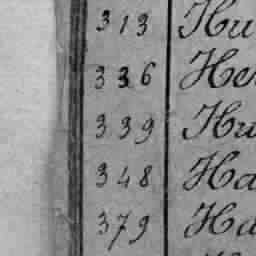 313 Hu
336 Her
339 Hu
348 Ha
379 Ha